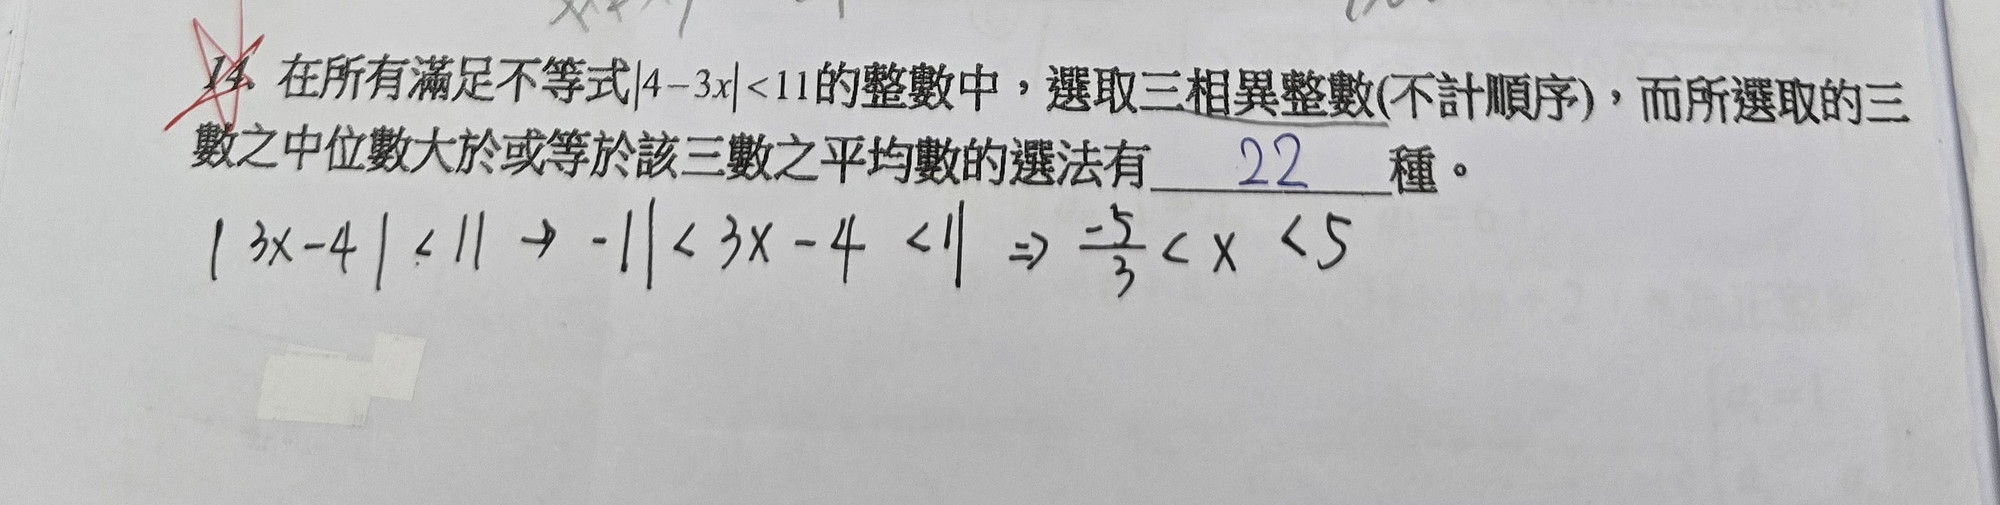 14. 在所有滿足不等式|4-3x|<11的整數中，選取三相異整數(不計順序)，而所選取的三
數之中位數大於或等於該三數之平均數的選法有 22 種。
|3x-4|<11 → -11<3x-4<11 ⇒ -5/3<x<5